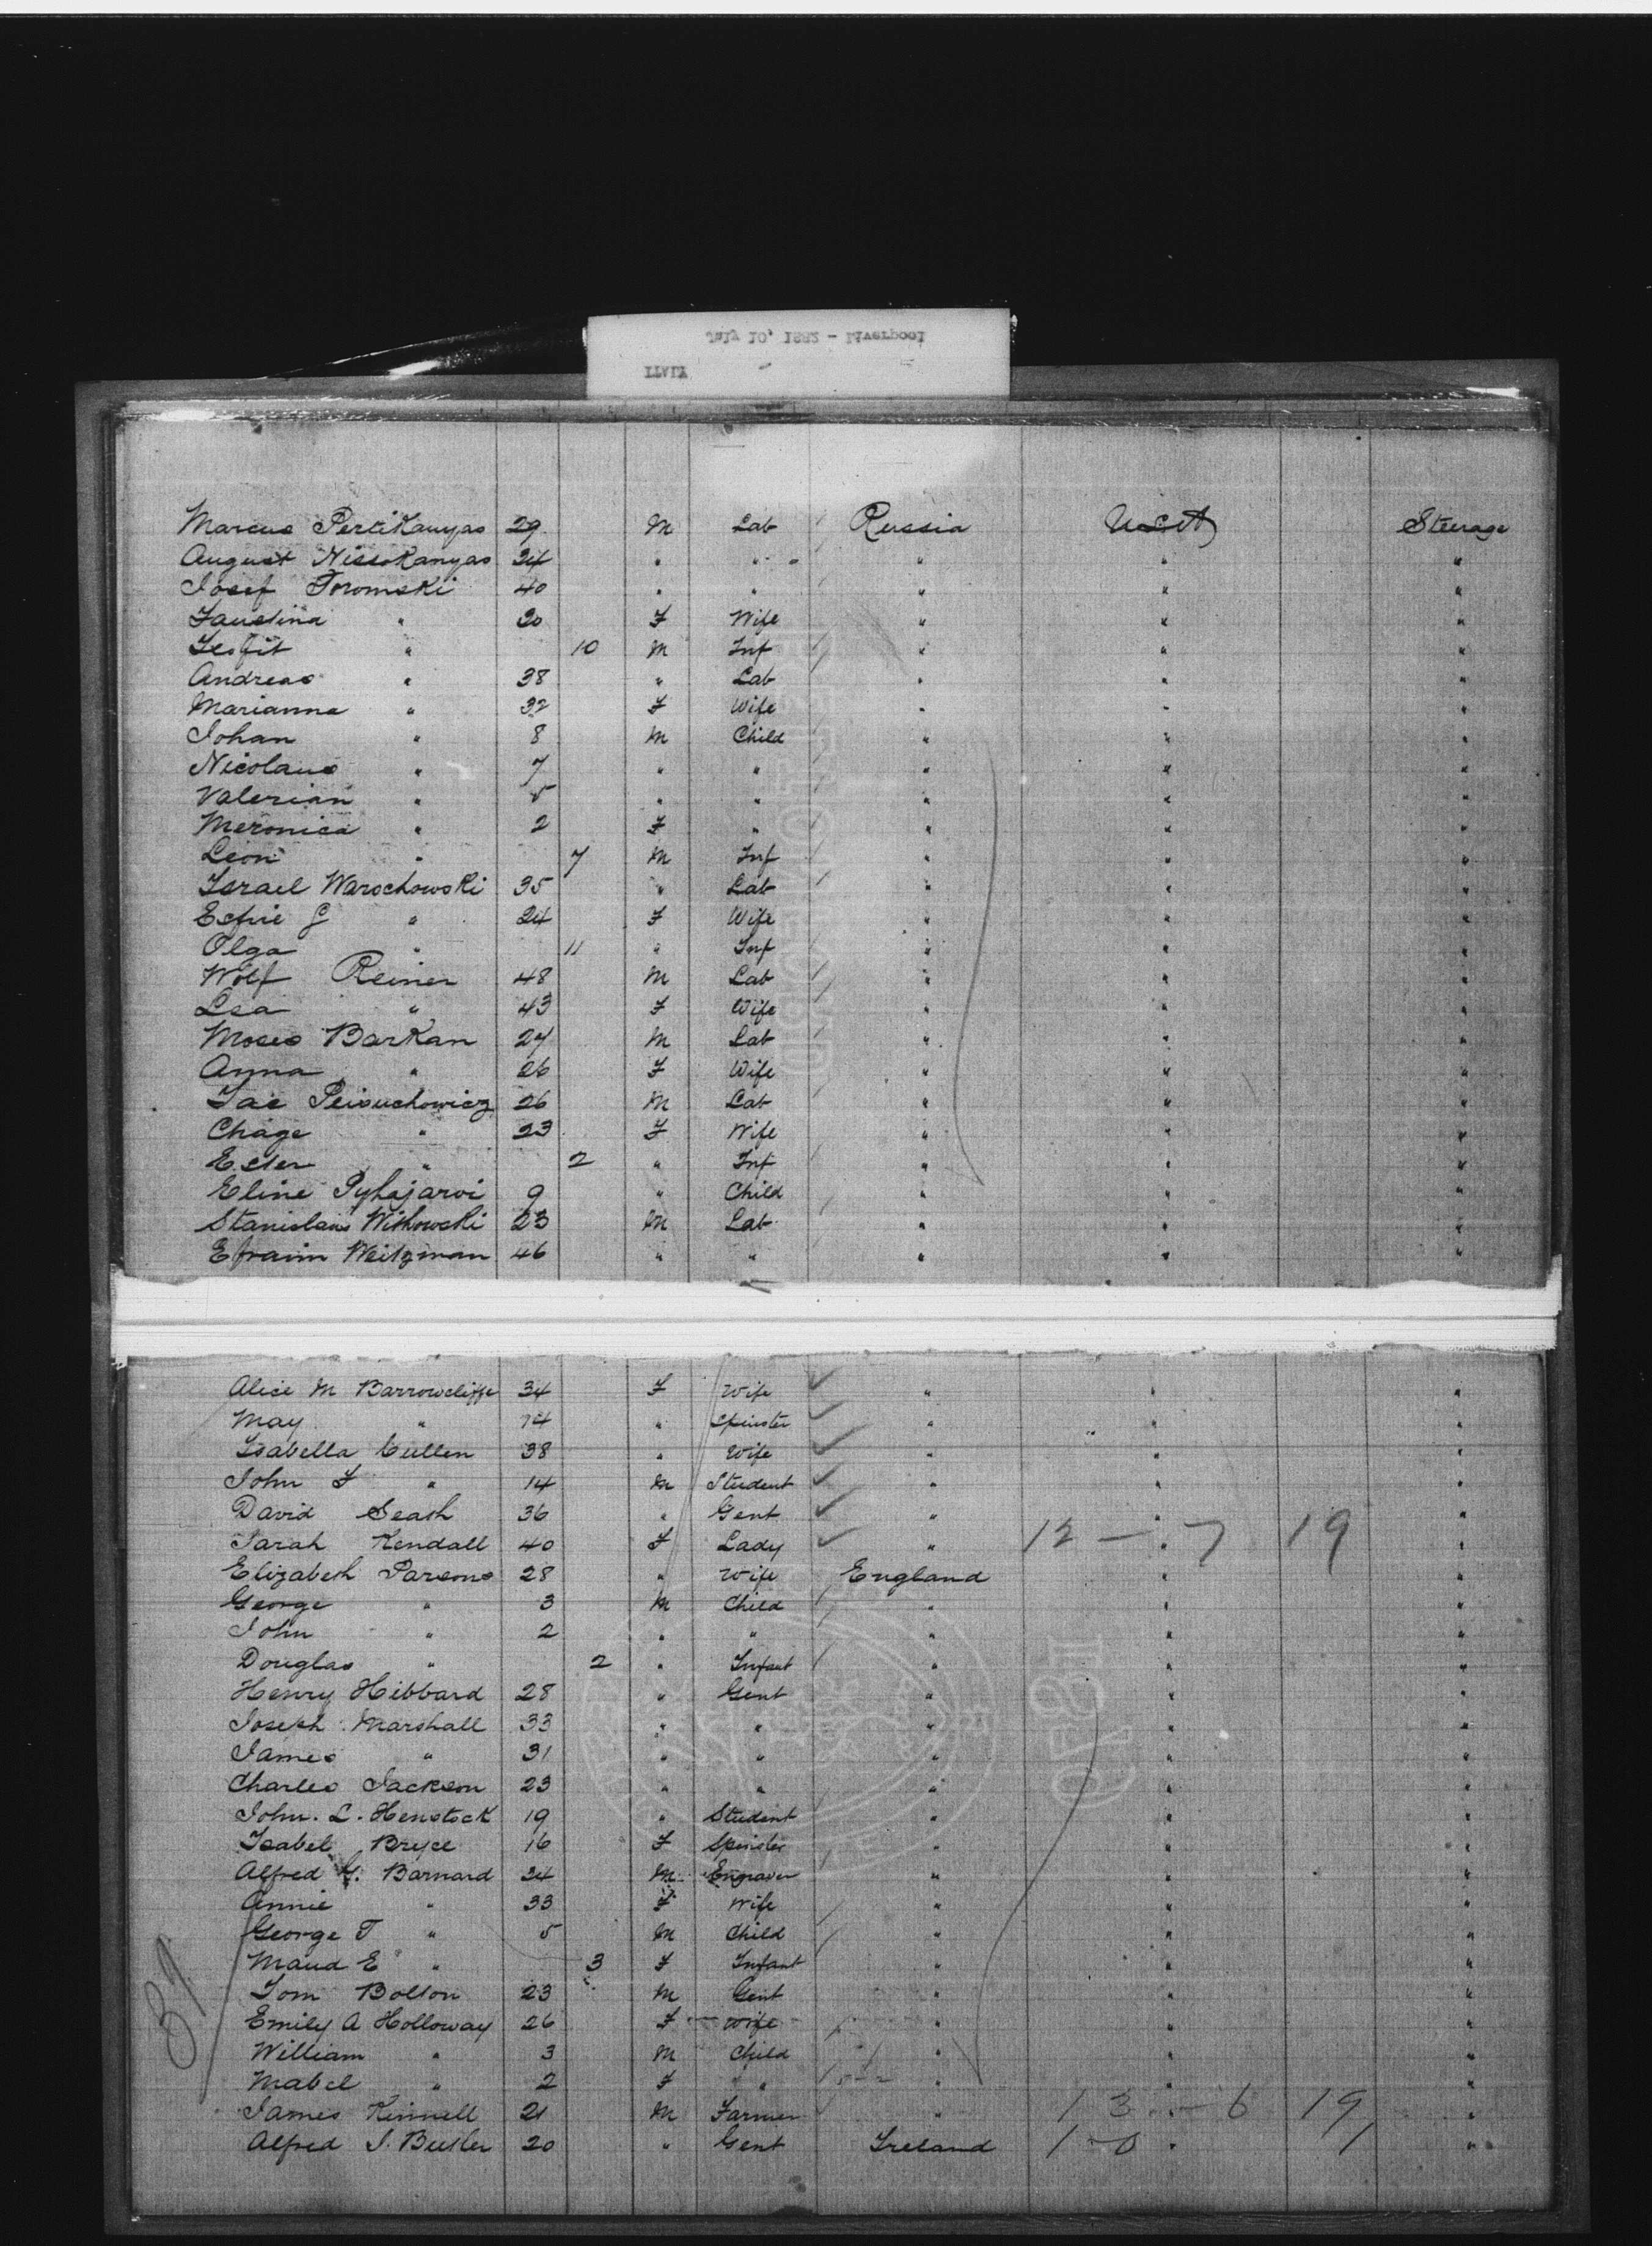 July 10, 1882 - Liverpool
Marcus Pertikangas 29 M Lab Russia USA Steerage
August Nissokangas 24 " " " " "
Josef Toromski 40 " " " " "
Faustina " 20 F Wife " " "
" 10 M Inf " " "
Andreas " 38 " Lab " " "
Marianna " 32 F Wife " " "
Johan " 8 M Child " " "
Nicolaus " 7 " " " " "
Valerian " 5 " " " " "
Meronica " 2 F " " " "
Leon " 7 M Inf " " "
Israel Warschowski 35 " Lab " " "
" 24 F Wife " " "
Olga " 11 " Inf " " "
Wolf Reiner 48 M Lab " " "
Lea " 43 F Wife " " "
Moses Barkan 27 M Lab " " "
Anna " 26 F Wife " " "
26 M Lab " " "
Chage " 23 F Wife " " "
Ester " 2 " Inf " " "
Eline Pyhajarvi 9 " Child " " "
Stanislaus Withowski 23 M Lab " " "
Efraim Weitzman 46 " " " " "
Alice M Barrowcliffe 34 F Wife " " "
May " 14 " Spinster " " "
Isabella Cullen 38 " Wife " " "
John F " 14 M Student " " "
David Seash 36 " Gent " " "
Sarah Kendall 40 F Lady " 12 - " 7 19 "
Elizabeth Parsons 28 " Wife England " "
George " 3 M Child " " "
John " 2 " " " " "
Douglas " 2 " Infant " " "
Henry Hibbard 28 " Gent " " "
Joseph Marshall 33 " " " " "
James " 31 " " " " "
Charles Jackson 23 " " " " "
John. L. Henstock 19 " Student " " "
Isabel Bryce 16 F Spinster " " "
Alfred G. Barnard 24 M Engraver " " "
Annie " 33 F Wife " " "
George T " 5 M Child " " "
Maud E " 3 F Infant " " "
Tom Bolton 23 M Gent " " "
Emily A Holloway 26 F Wife " " "
William " 3 M Child " " "
Mabel " 2 F " " " "
James Kinnell 21 M Farmer " 13 - 6 19 "
Alfred J. Butler 20 " Gent Ireland 1-0 " 1 "
39